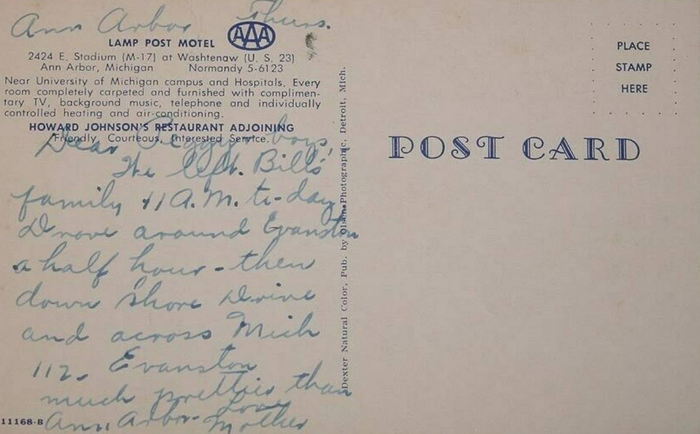 Ann Arbor Thurs.
AAA
LAMP POST MOTEL
2424 E. Stadium (M-17) at Washtenaw (U. S. 23)
Ann Arbor, Michigan Normandy 5-6123
Near University of Michigan campus and Hospitals. Every
room completely carpeted and furnished with complimen-
tary TV, background music, telephone and individually
controlled heating and air-conditioning.
HOWARD JOHNSON'S RESTAURANT ADJOINING
Friendly, Courteous, Interested Service.
Dear Peggy boys,
We left Bill's
family 11 A.M. to-day
Drove around Evanston
a half hour - then
down Shore Drive
and across Mich
112. Evanston
much prettier than
Ann Arbor - Love
Mother
11168-B
Dexter Natural Color, Pub. by Photographic, Detroit, Mich.
POST CARD
PLACE
STAMP
HERE